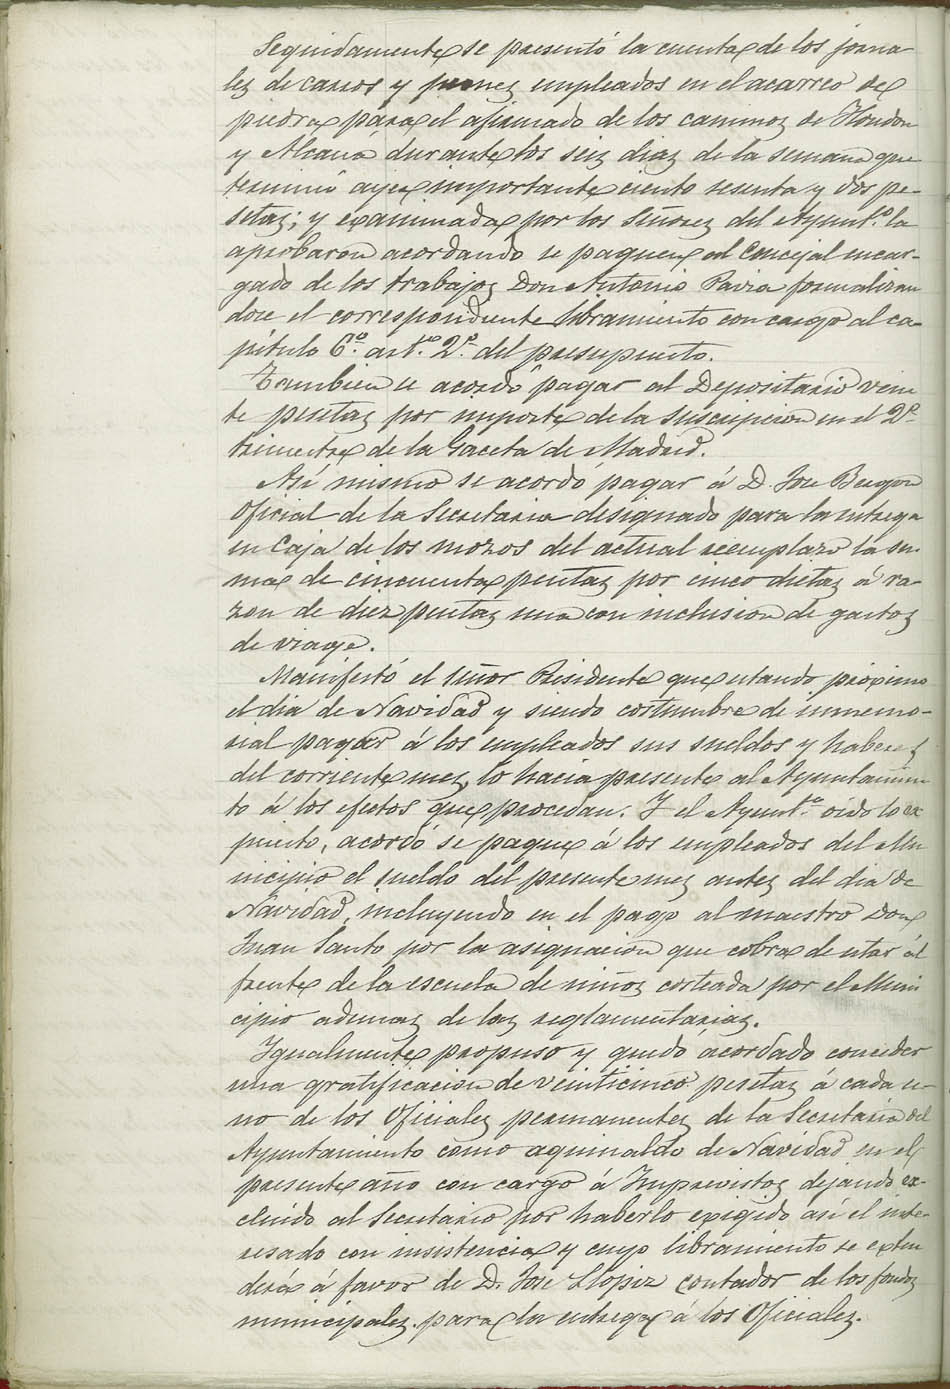 Seguidamente se presentó la cuenta de los jorna-
les de carros y peones empleados en el acarreo de
piedra para el afirmado de los caminos de Hondon
y Alcaná durante los seis dias de la semana que
terminó ayer importante ciento sesenta y dos pe-
setas; y examinada por los Señores del Ayunt.º la
aprobaron acordando se pague al Concejal encar-
gado de los trabajos Don Antonio Pavia formalizan
dose el correspondiente libramiento con cargo al ca-
pitulo 6.º art.º 2.º del presupuesto.
Tambien se acordó pagar al Depositario vein
te pesetas por importe de la suscripcion en el 2.º
trimestre de la Gaceta de Madrid.
Asi mismo se acordó pagar á D. Jose Bergon
Oficial de la Secretaria designado para la entrega
en Caja de los mozos del actual reemplazo la su-
ma de cincuenta pesetas por cinco dietas á ra-
zon de diez pesetas una con inclusion de gastos
de viage.
Manifestó el Señor Presidente que estando próximo
el dia de Navidad y siendo costumbre de inmemo-
rial pagar á los empleados sus sueldos y haberes
del corriente mes, lo hacia presente al Ayuntamien
to á los efectos que procedan. Y el Ayunt.º oido lo ex
puesto, acordó se pague á los empleados del Mu
nicipio el sueldo del presente mes antes del dia de
Navidad, incluyendo en el pago al maestro Don
Juan Santo por la asignacion que cobra de estar al
frente de la escuela de niños costeada por el Muni
cipio ademas de las reglamentarias.
Igualmente propuso y quedó acordado conceder
una gratificacion de veinticinco pesetas á cada u-
no de los Oficiales permanentes de la Secretaria del
Ayuntamiento como aguinaldo de Navidad en el
presente año con cargo á Imprevistos dejando ex-
cluido al Secretario por haberlo exigido asi el inte-
resado con insistencia y cuyo libramiento se exten
derá á favor de D. Jose Llopiz contador de los fondos
municipales para la entrega á los Oficiales.